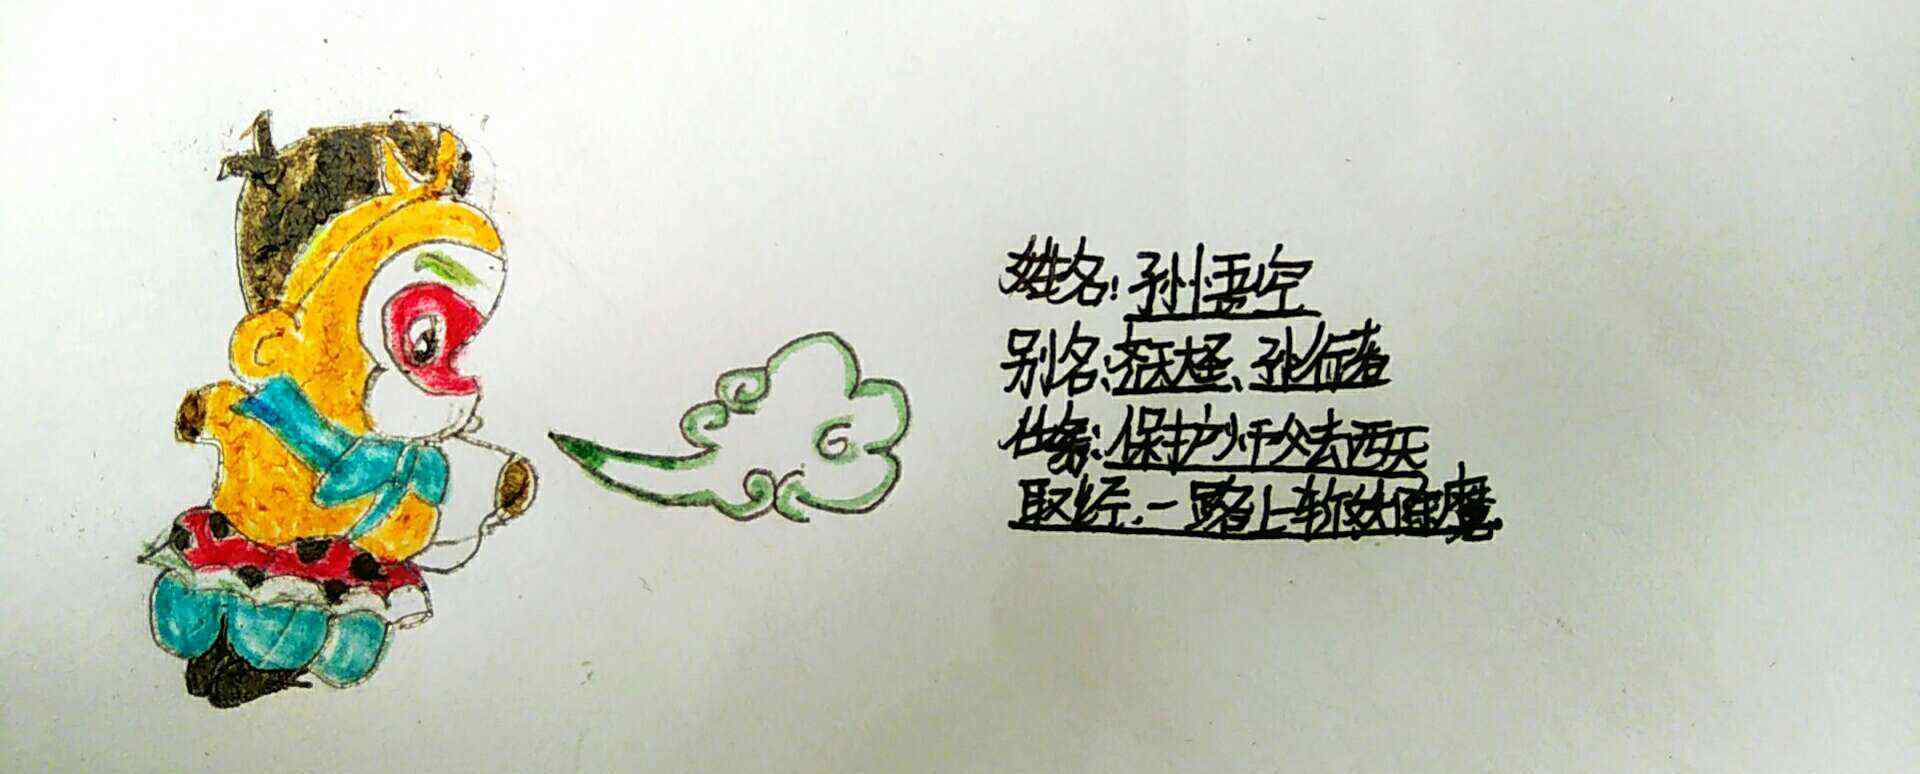 姓名：孙悟空
别名：齐天大圣、孙行者
任务：保护师父去西天
取经，一路上斩妖除魔